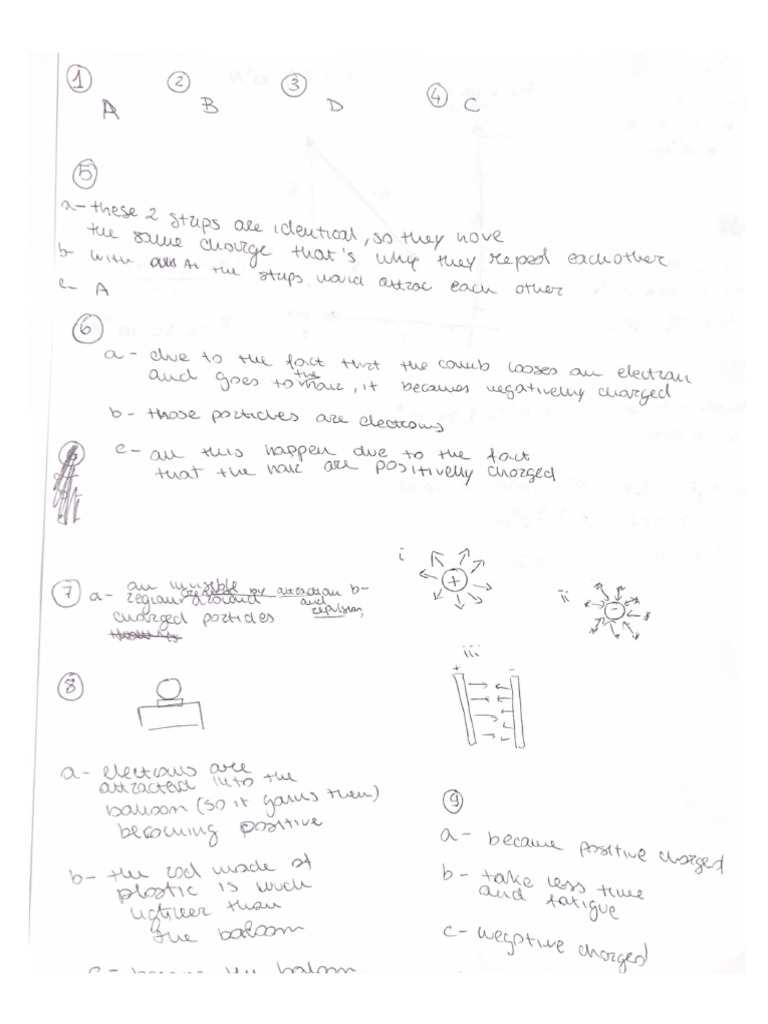 ① ② ③ ④
A B D C
⑤
a- these 2 strips are identical, so they have
the same charge that's why they repeal each other
b- with at the strips attrac each other
c- A
⑥
a- due to the fact that the comb looses an electron
and goes to the hair, it becomes negativenly charged
b- those particles are electrons
c- all this happen due to the fact
that the hair are positivelly charged
⑦ a- an invisible
region around created by attraction
and repulsion
charged particles
b-
i
+
ii
-
iii
+ -
⑧
a- electrons are
attracted into the
balloon (so it gains them)
becoming positive
b- the rod made of
plastic is much
than
the baloom
⑨
a- became positive charged
b- take less time
and fatigue
c- negative charged